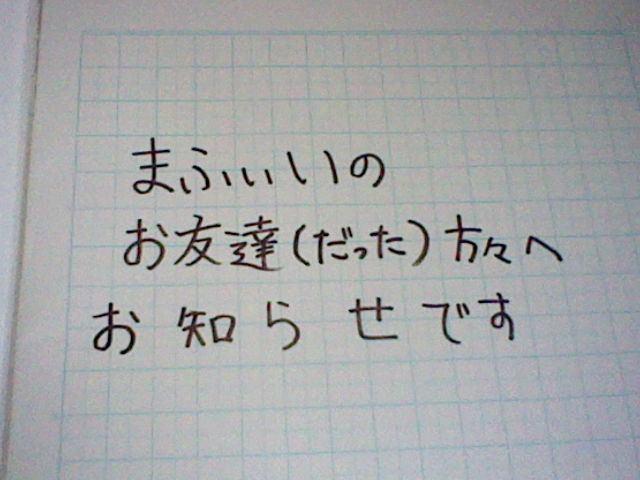 まふぃいいの
お友達(だった)方々へ
お知らせです